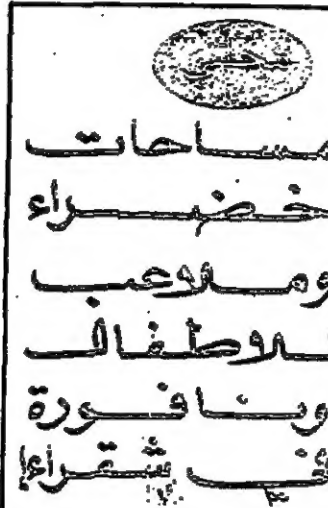 مساحات
خضراء
وملاعب
للاطفال
ونافورة
في شقراء